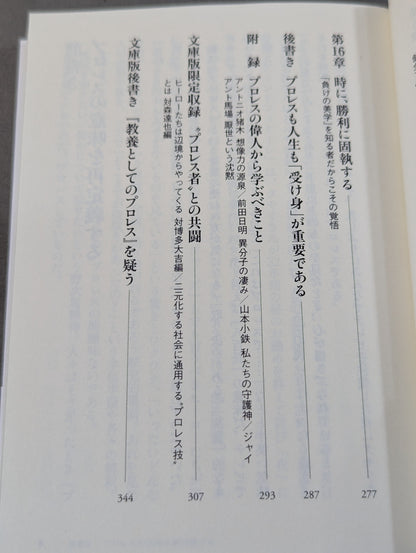 第16章 時に、勝利に固執する 277
「負けの美学」を知る者だからこその覚悟
後書き プロレスも人生も「受け身」が重要である 287
附録 プロレスの偉人から学ぶべきこと 293
アントニオ猪木 想像力の源泉/前田日明 異分子の凄み/山本小鉄 私たちの守護神/ジャイ
アント馬場 厭世という沈黙
文庫版限定収録 “プロレス者”との共闘 307
ヒーローたちは辺境からやってくる 対博多大吉編/二元化する社会に通用する“プロレス技”
とは 対森達也編
文庫版後書き 『教養としてのプロレス』を疑う 344